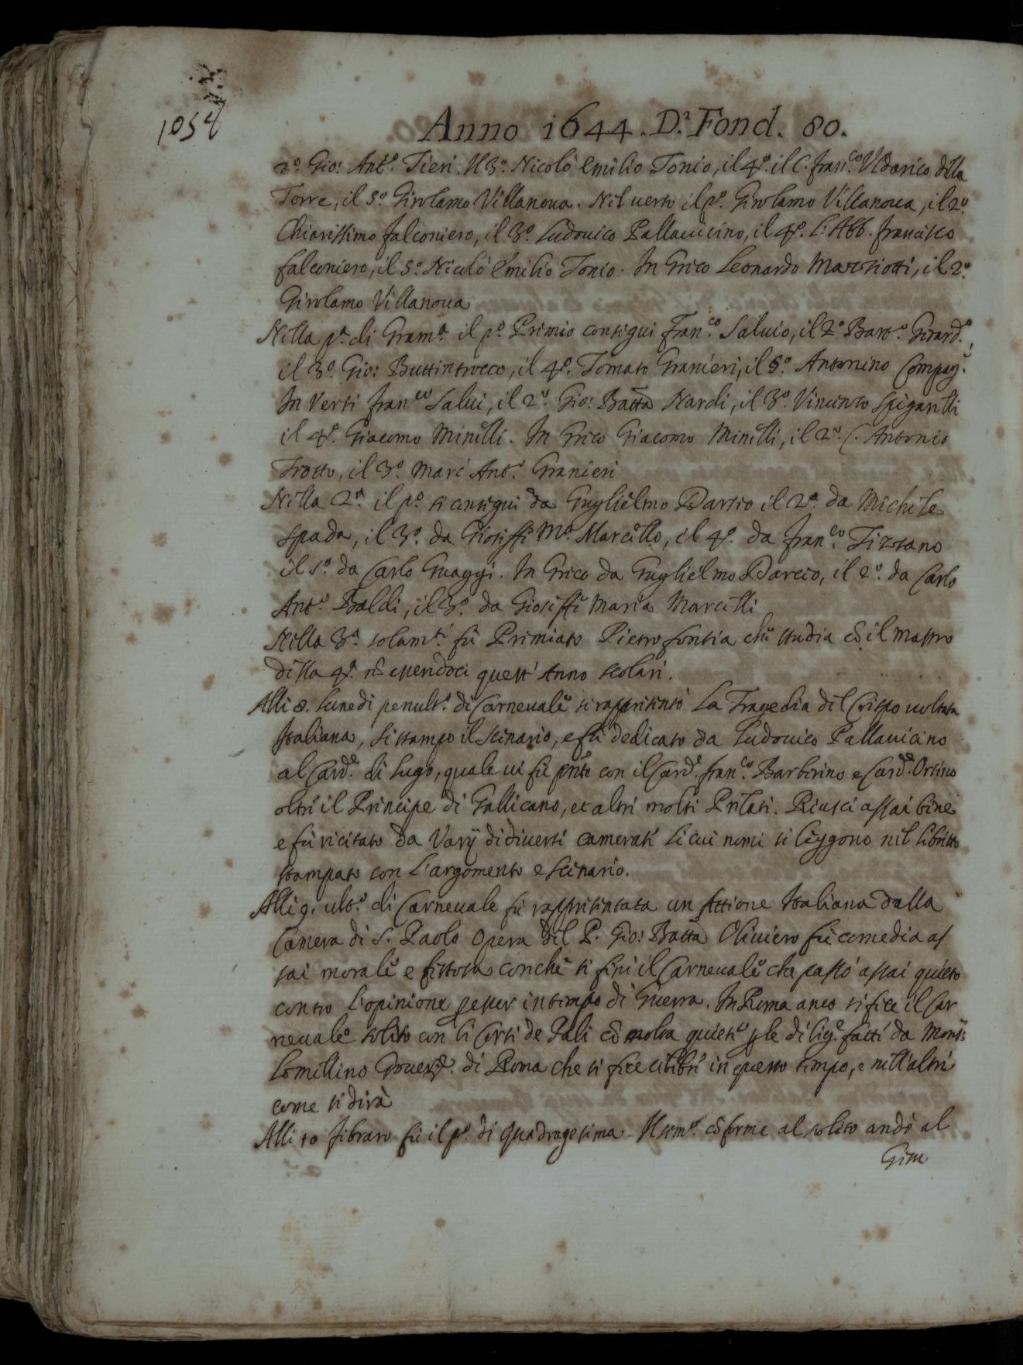 1054
Anno 1644. D.ª Fond. 80.
2º Gio: Ant.º Tieri. Il 3º Nicolò Emilio Tonio, il 4º il C. Fran.co Vldarico della
Torre, il 5º Girolamo Villanoua. Nel uerso il pº Girolamo Villanoua, il 2º
Chiarissimo falconiero, il 3º Ludouico Pallauicino, il 4º L'Abb. Francesco
falconiero, il 5º Nicolò Emilio Tonio. In Greco Leonardo Marsiotti, il 2º
Girolamo Villanoua
Nella pª di Gram.ª il pº Premio conseguì Fran.co Saluio, il 2º Bart.º Girard.º
il 3º Gio: Buttintrocco, il 4º Tomaso Granieri, il 5º Antonino Compag.
In Versi Fran.co Salui, il 2º Gio: Batta Nardi, il 3º Vincenzo Spigarelli
il 4º Giacomo Minelli. In Greco Giacomo Minelli, il 2º C. Antonio
Trotto, il 3º Marc Ant.º Granieri
Nella 2ª il pº si conseguì da Guglielmo Darsio il 2º da Michele
Spada, il 3º da Gioseffe Mª Marcello, il 4º da Fran.co Tizzano
il 5º da Carlo Guaggi. In Greco da Guglielmo Darcio, il 2º da Carlo
Ant.º Baldi, il 3º da Gioseffe Maria Marcelli
Nella 3ª solam.te fù Premiato Pietro fontia che studia cō il mastro
della 4ª nō essendoci quest' Anno scolari.
Alli 8. lunedi penult.º di Carneuale si rappresentò La Tragedia del Crispo uoltata
Italiana, si stampo il scenario, e fù dedicato da Ludouico Pallauicino
al Card.e di Lugo, quale ui fù pnte con il Card. fran.co Barberino e Card.e Orsino
oltre il Principe di Gallicano, et altri molti Prelati. Riuscì assai bene
e fù recitato da Varij di diuerse camerate li cui nomi si leggono nel libretto
stampato con l'argomento e scenario.
Alli 9. ult.º di Carneuale fù rappresentata un Attione Italiana dalla
Camera di S. Paolo Opera del P. Gio: Batta Oliuiero fù comedia as
sai morale e festosa conche si finì il Carneuale che passò assai quieto
contro l'opinione p esser in tempo di Guerra. In Roma anco si fece il Car
neuale solito con li Corsi de Pali cō molta quiete p le dilig.e fatte da Mons.r
Lomellino Gouer.e di Roma che si fece celebre in questo tempo, e nell'altri
come si dirà
Alli 10 febraro fù il pº di Quadragesima. Il sem.º cōforme al solito andò al
Giesù